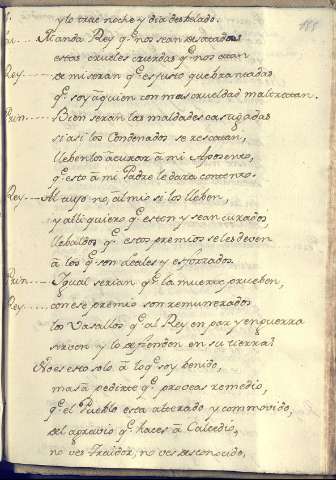 y lo trae noche y dia desbelado.
Manda Rey q.e nos sean desatados
estas crueles cuerdas q.e nos atan
Rey.... de mi seran q.e es justo quebrantadas
q.e soy a quien con mas crueldad maltratan.
Prin.... Bien seran las maldades castigadas
si asi los Condenados se rescatan,
llebenlos à curar à mi Aposento,
q.e esto à mi Padre le dara contento.
Rey.... Al tuyo no, àl mio si los lleben,
y alli quiero q.e esten y sean curados,
llebaldos q.e estos premios se les deven
à los q.e son leales y esforzados.
Prin.... Igual serian q.e la muerte prueben,
Rey.... con ese premio son remunerados
los Vasallos q.e al Rey en paz y en guerra
sirven y lo defienden en su tierra?
No es esto solo à lo q.e soy benido,
mas à pedirte q.e proveas remedio,
q.e el Pueblo està alterado y commovido,
del agravio q.e haces à Calcedio,
no ves Traidor, no ves desconocido,